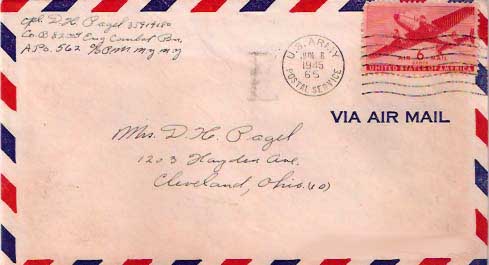 Cpl. D. H. Pagel 35919680
Co. B 82nd Eng Combat Bn.
A.P.O. 562 % P.M. N.Y. N.Y
U.S. ARMY
JUN 6
1945
65
POSTAL SERVICE
AIR 6 MAIL
UNITED STATES OF AMERICA
VIA AIR MAIL
Mrs. D. H. Pagel
1203 Hayden Ave.
Cleveland, Ohio. (10)